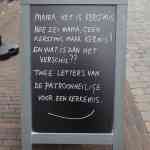 MAMA HET IS KERSTMIS
NEE ZEI MAMA, GEEN
KERSTMIS MAAR KERMIS!
EN WAT IS DAN HET
VERSCHIL??
TWEE LETTERS VAN
DE PATROONHEILIGE
VOOR EEN KERKEMIS.